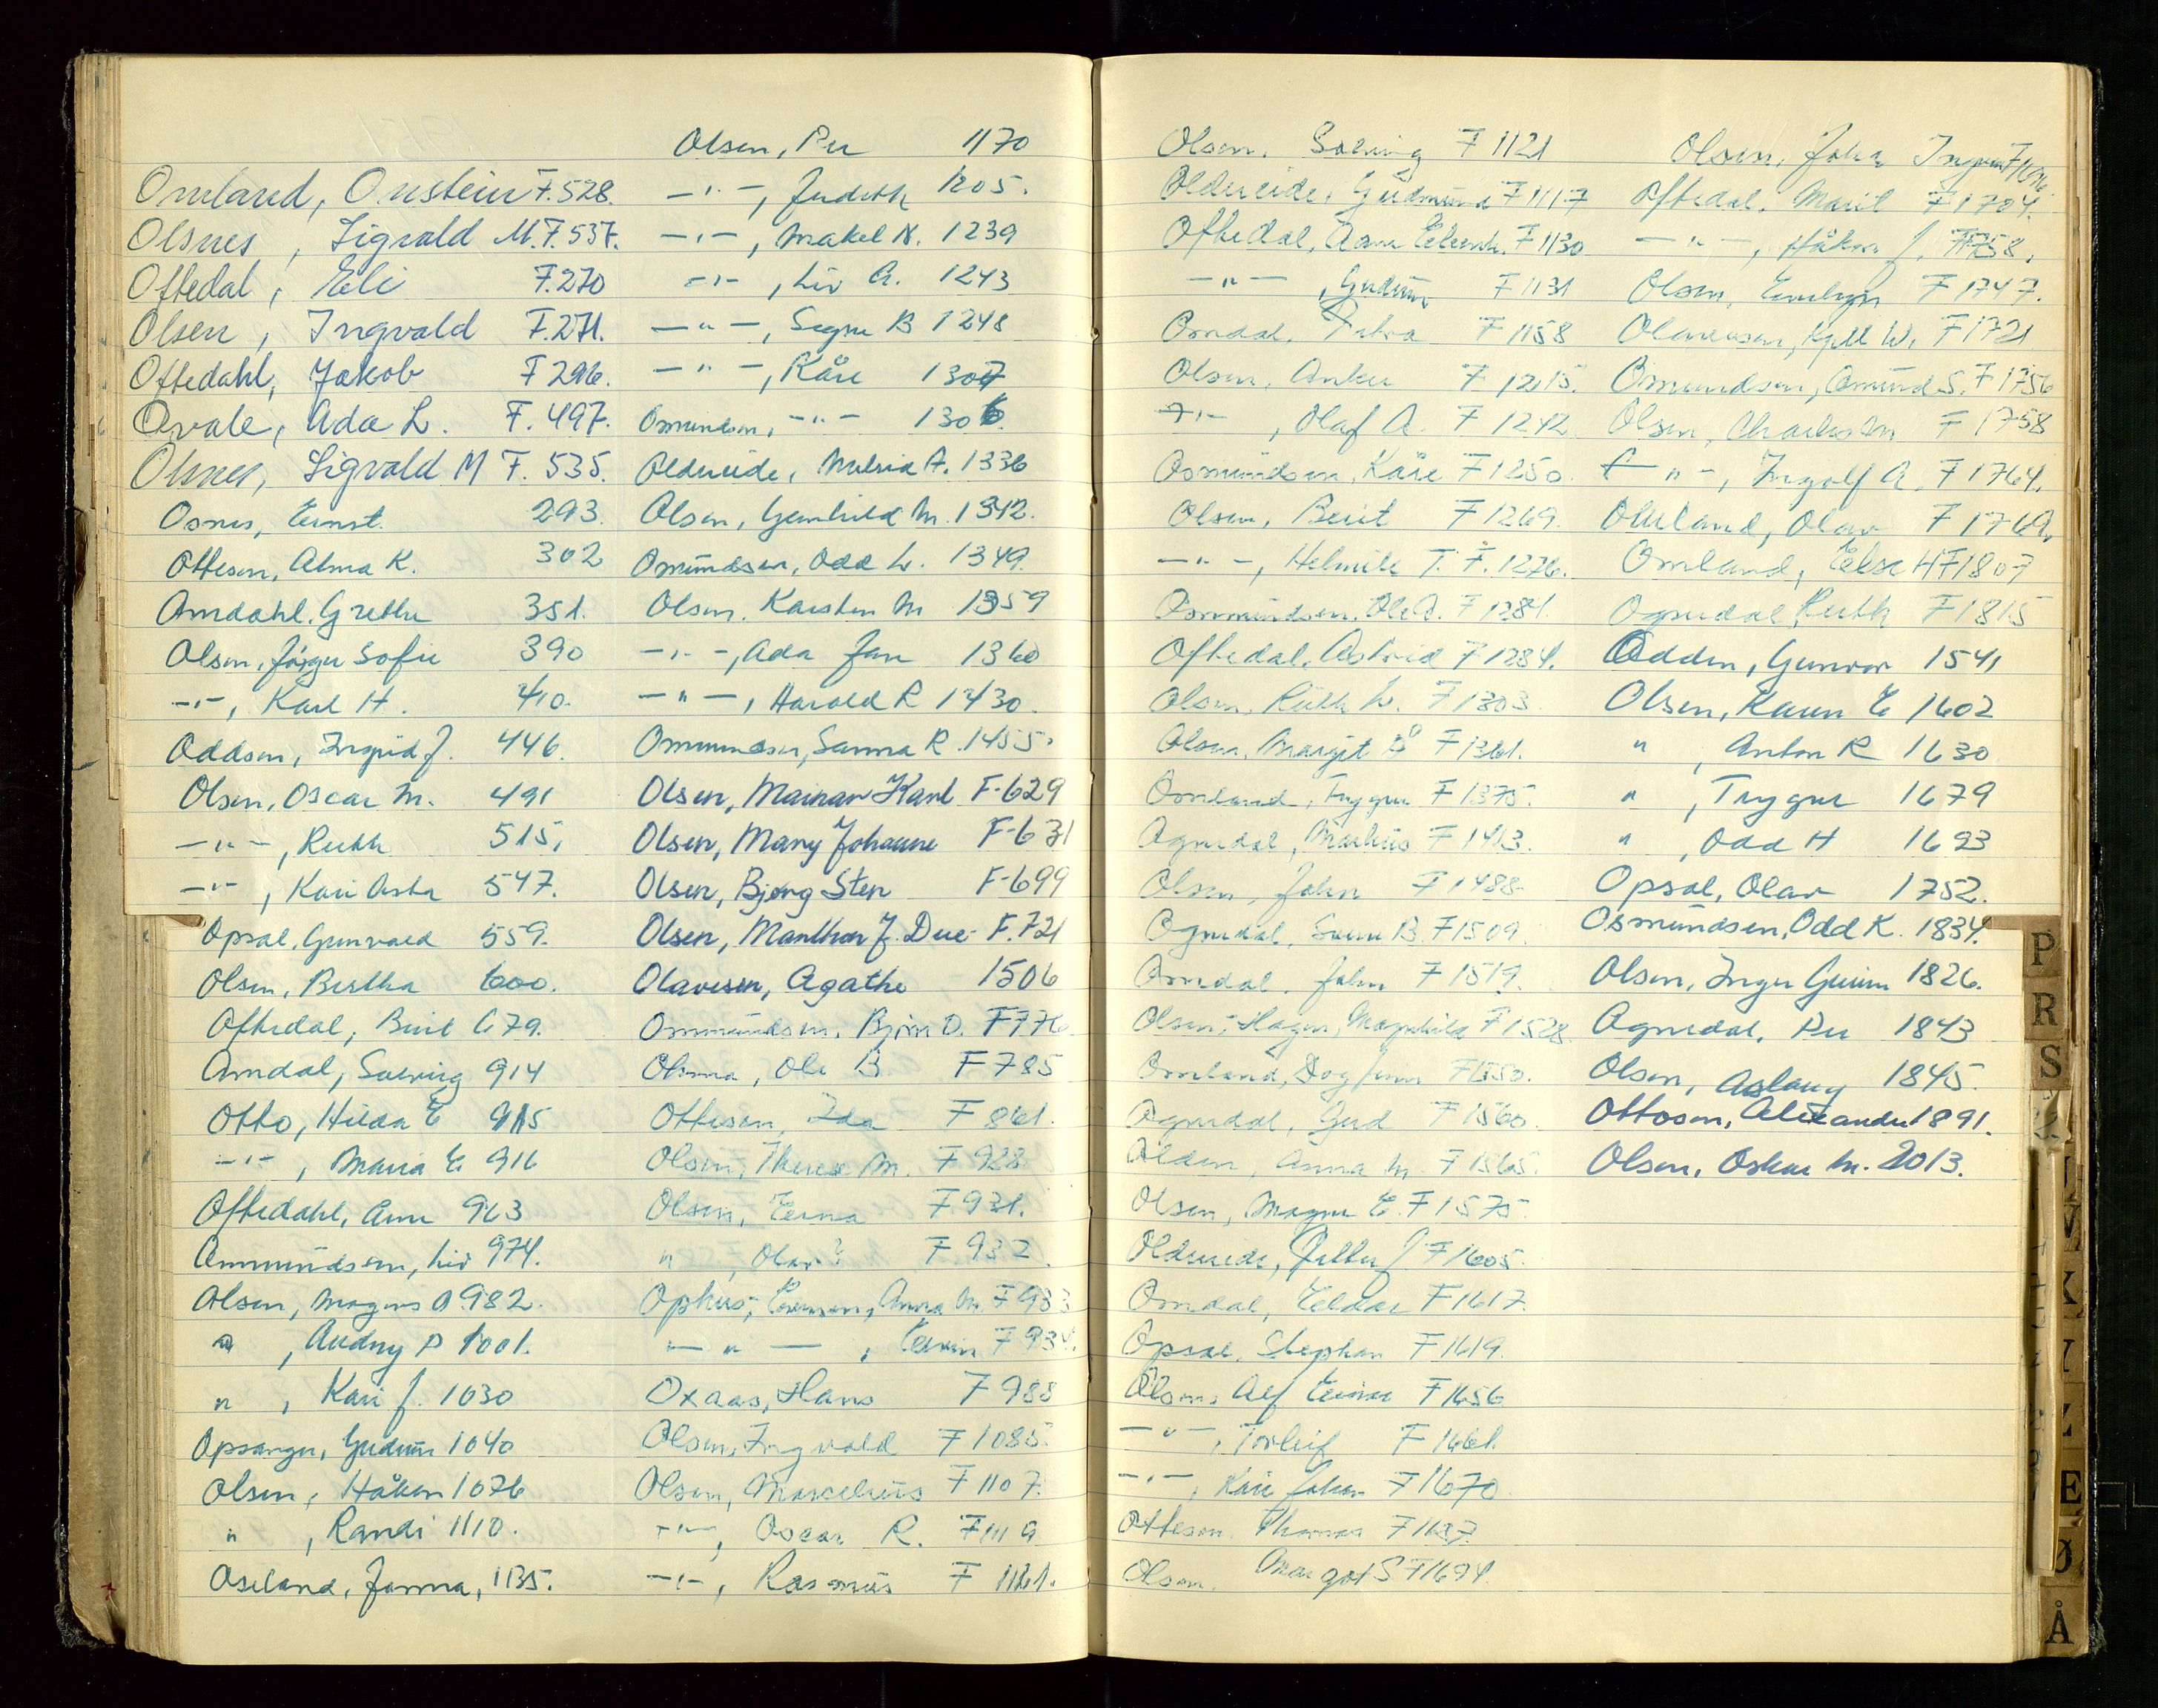 Omland, Onstein F. 528.
Olsnes, Sigvald M. F. 537.
Oftedal, Eli F. 270
Olsen, Ingvald F. 271.
Oftedahl, Jakob F 296.
Ovale, Ada L. F. 497.
Olsnes, Sigvald M F. 535.
Osnes, Ernst. 293.
Ottesen, Alma K. 302
Omdahl, Grethe 351.
Olsen, Sofie 390
-"-, Karl H. 410.
Oddsen, Ingrid J. 446.
Olsen, Oscar M. 491
-"-, Ruth 515.
-"-, Kari Asta 547.
Opsal, Gunvald 559.
Olsen, Bertha 600.
Oftedal, Berit 679.
Omdal, Solveig 914
Otto, Hilda E 915
-"-, Maria E 916
Oftedahl, Anne 963
Ommundsen, Liv 974.
Olsen, Magnus O 982.
", Audny P 1001.
", Kari J. 1030
Opsanger, Gudrun 1040
Olsen, Håkon 1076
", Randi 1110.
Oseland, Janna, 1135.
Olsen, Per 1170
-"-, Judith 1205.
-"-, Makel N. 1239
-"-, Liv A. 1243
-"-, Signe B 1248
-"-, Kåre 1307
Osmundsen, -"- 1306.
Oldereide, Milrid A. 1336
Olsen, Gunhild M. 1342.
Omundsen, Odd L. 1349.
Olsen, Karsten M 1359
-"-, Ada Jan 1360
-"-, Harald R 1430.
Ommundsen, Sanna R. 1455.
Olsen, Mainar Karl F-629
Olsen, Mary Johanne F-631
Olsen, Bjørg Sten F-699
Olsen, Manthor J. Due F. 721
Olavesen, Agathe 1506
Ommundsen, Bjørn O. F 776
Olsina, Ole B. F 785
Ottesen, Ida F 861.
Olsen, Therese M. F 928.
Olsen, Erna F 931.
", Olav E F 932.
Ophus, Evensen, Anna M. F 933
-"-, Edvin F 934.
Oxaas, Hans F 988
Olsen, Ingvald F 1085.
Olsen, Marcelius F 1107.
-"-, Oscar R. F 1119
-"-, Rasmus F 1161.
Olsen, Solveig F 1121
Oldereide, Gudmund F 1117
Oftedal, Anna Elisabeth. F 1130
-"-, Gudrun F 1131
Omdal, Petra F 1158
Olsen, Anker F 1215.
-"-, Olaf A. F 1242
Osmundsen, Kåre F 1250.
Olsen, Berit F 1269.
-"-, Helmik T. F. 1276.
Osmundsen, Ole A. F 1281.
Oftedal, Astrid F 1284.
Olsen, Ruth L. F 1303
Olsen, Margit F 1361.
Omland, Trygve F 1375.
Ognedal, Markus F 1413.
Olsen, John F 1488
Ognedal, Svein B. F 1509.
Omdal, John F 1519.
Olsen, Hagen, Magnhild F 1528
Omland, Dagfinn F 1550.
Ognedal, Gerd F 1560.
Olden, Anna M. F 1565.
Olsen, Magne E. F 1575
Oldereide, Petter J. F 1605.
Omdal, Eldar F 1617.
Opsal, Stephan F 1619.
Olsen, Alf Einar F 1656
-"-, Torleif F 1661.
-"-, Kåre Johan F 1670
Ottesen, Thomas F 1687.
Olsen, Margot S. F 1694.
Olsen, John Ingvar F 1696
Oftedal, Marit F 1704.
-"-, Håkon J. F 1758.
Olsen, Emelyn F 1747.
Olavesen, Kjell W. F 1721
Osmundsen, Omund S. F 1756
Olsen, Charles M F 1758
-"-, Ingolf A. F 1764.
Omland, Olav F 1769.
Omland, Else H F 1807
Ognedal, Ruth F 1815
Odden, Gunvor 1541
Olsen, Karen E 1602
", Anton R 1630
", Trygve 1679
", Odd H 1693
Opsal, Olav 1752.
Osmundsen, Odd K. 1834.
Olsen, Inger Gunn 1826.
Ognedal, Per 1843
Olsen, Aslaug 1845.
Ottosen, Alexander 1891.
Olsen, Oskar M. 2013.
P
R
S
E
Ø
Å